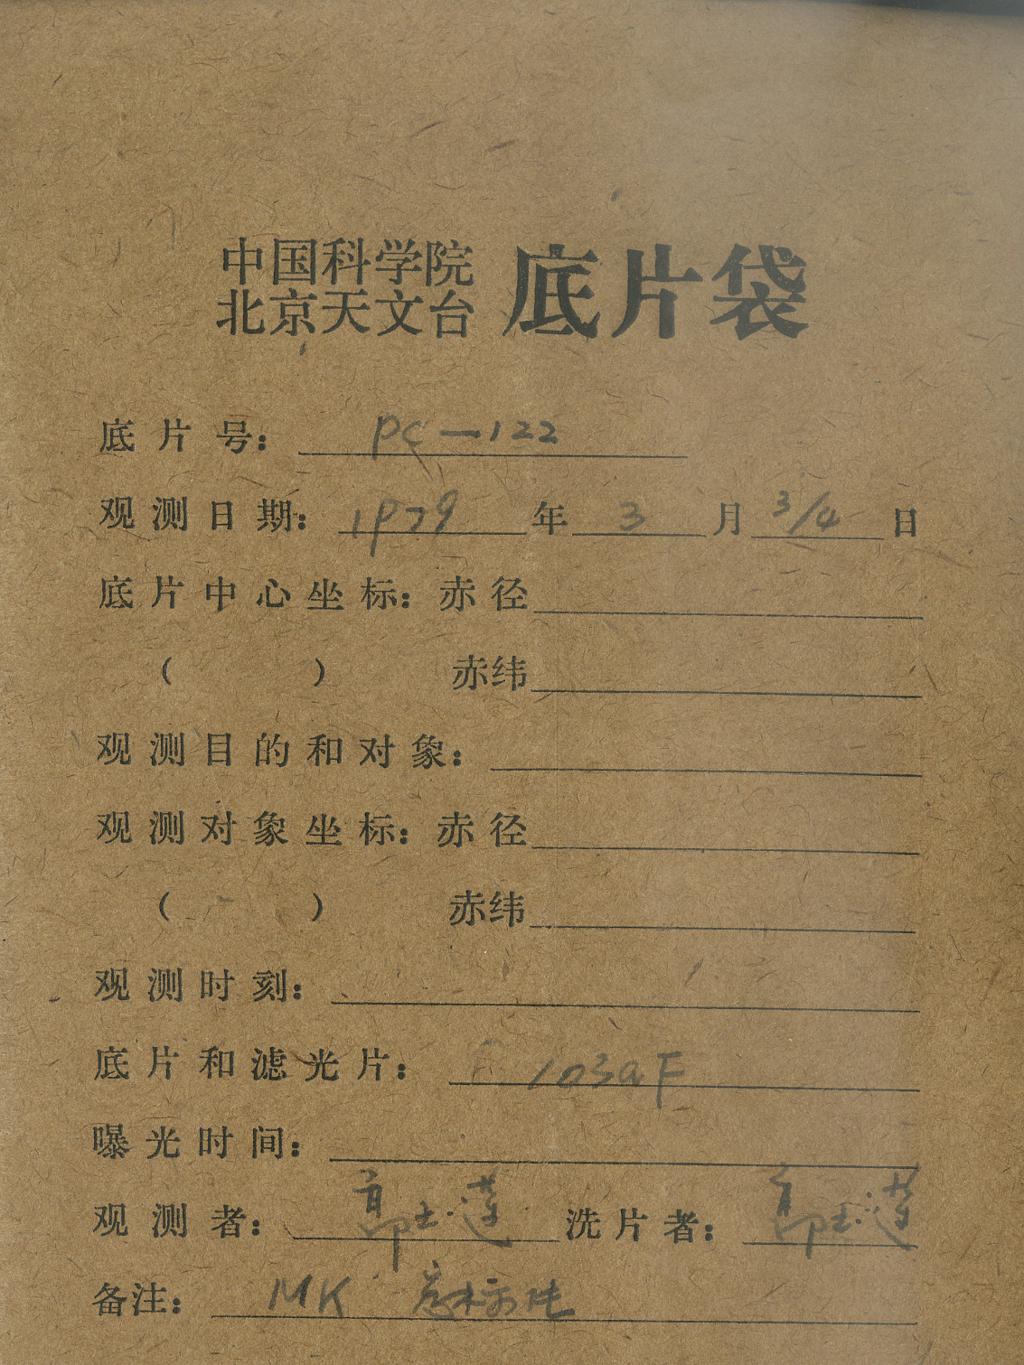 中国科学院
北京天文台 底片袋
底片号: PC-122
观测日期: 1979 年 3 月 3/4 日
底片中心坐标: 赤径
( ) 赤纬
观测目的和对象:
观测对象坐标: 赤径
( ) 赤纬
观测时刻:
底片和滤光片: 103aF
曝光时间:
观测者: 郭玉莲 洗片者: 郭玉莲
备注: MK 标准